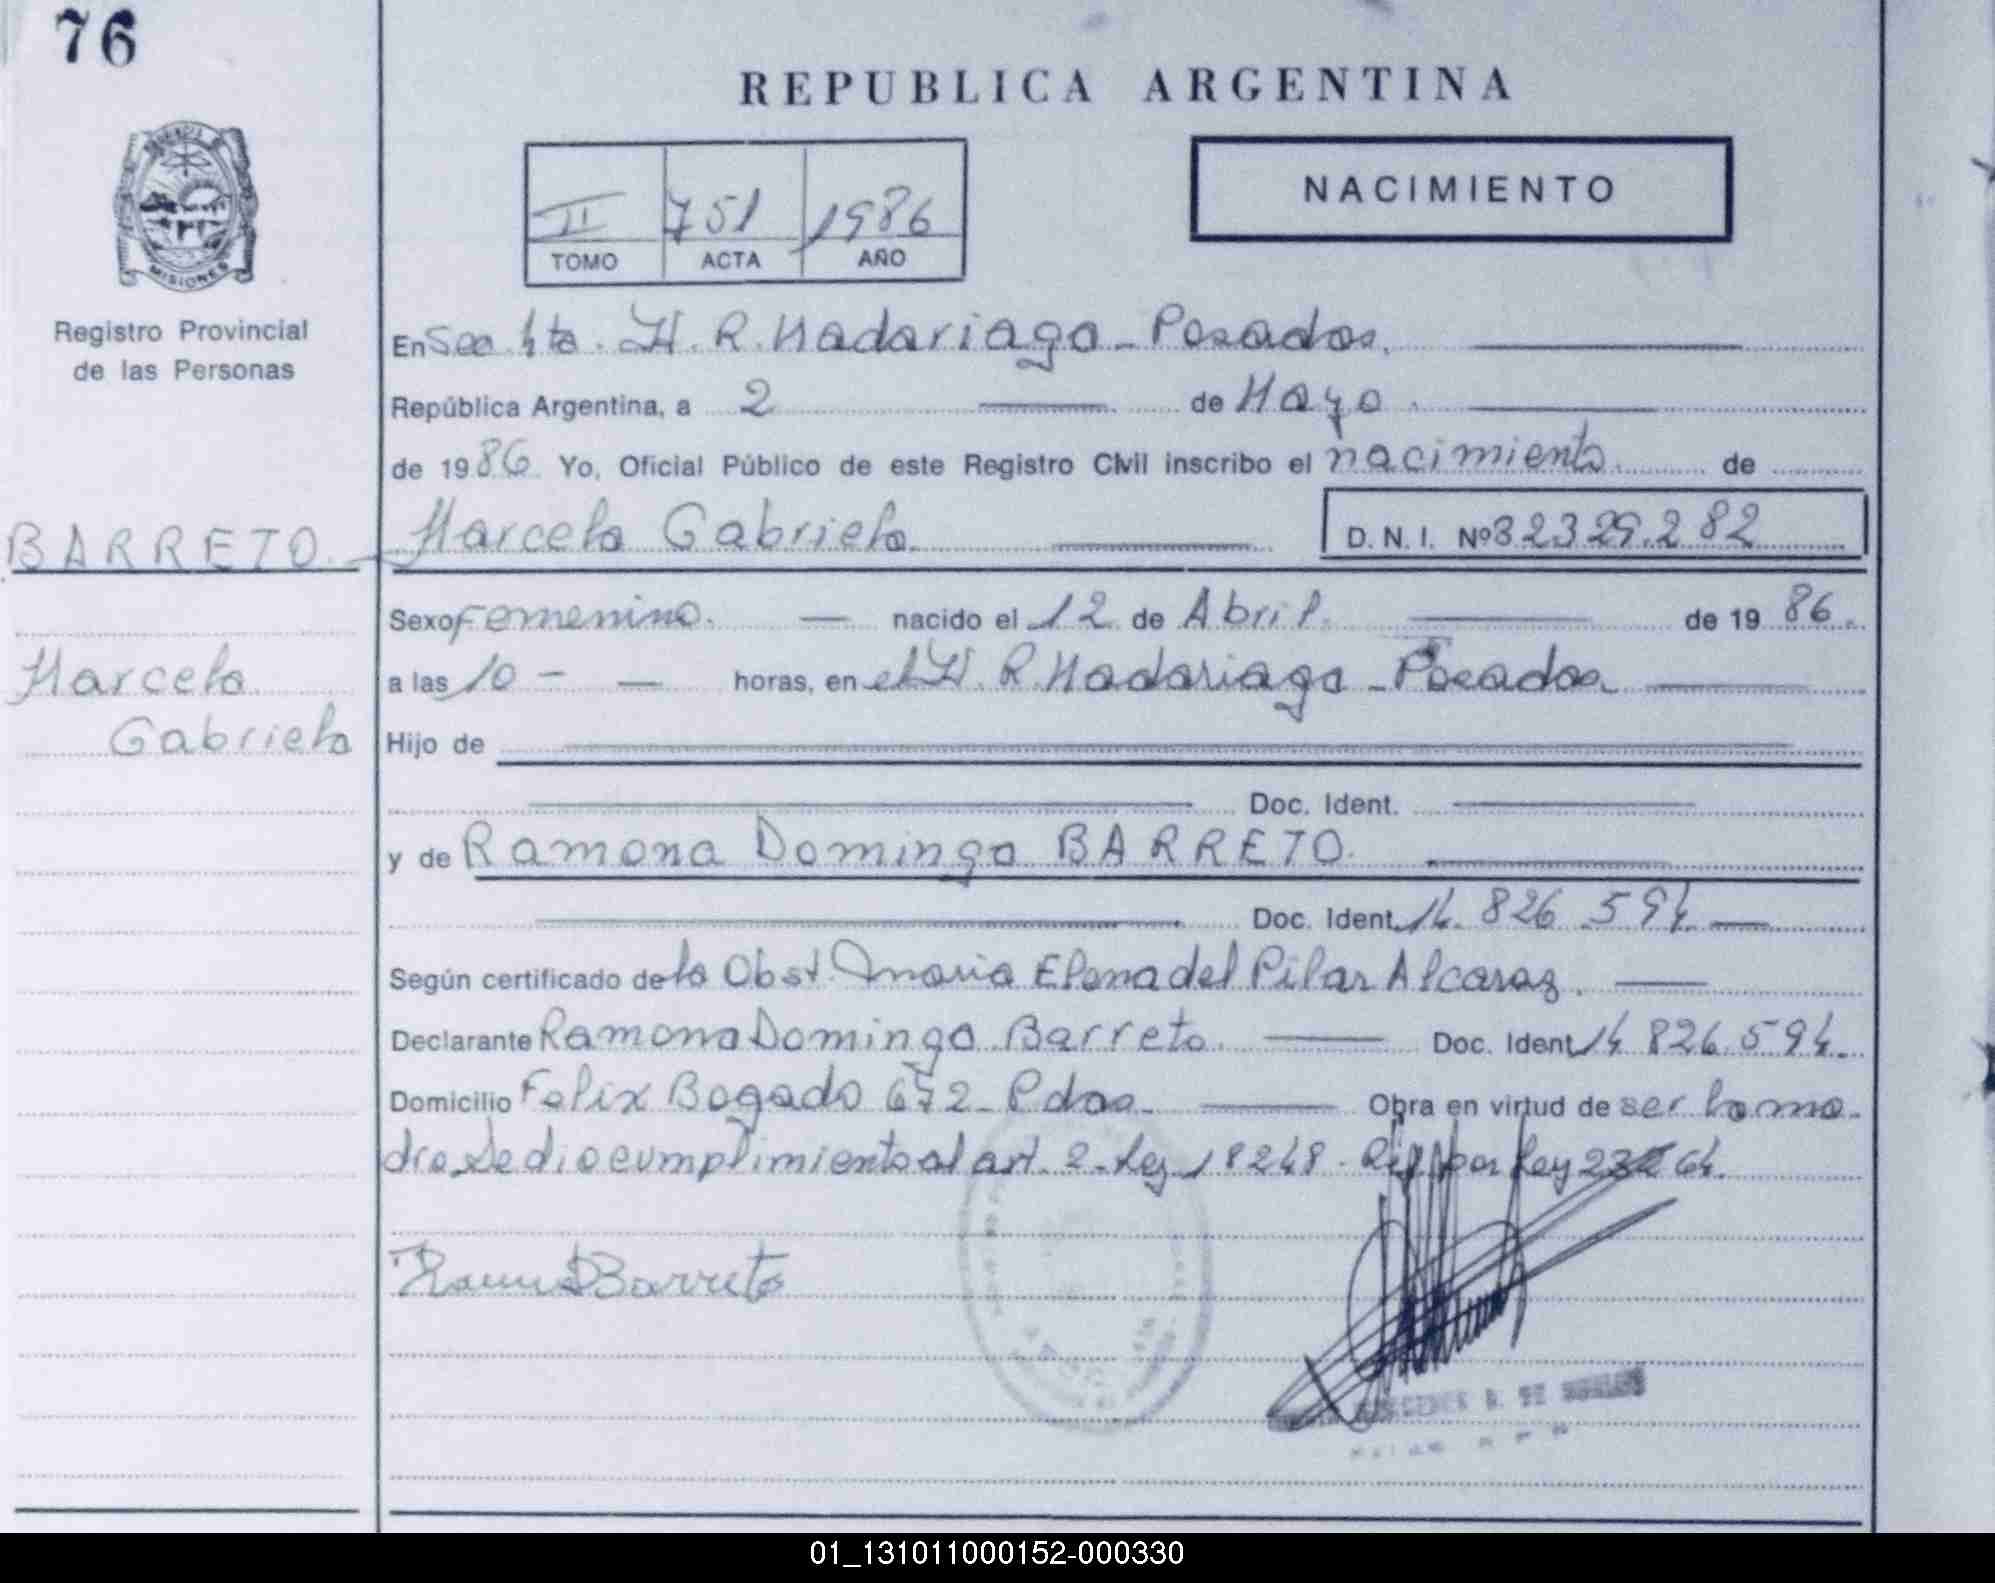 76
REPUBLICA ARGENTINA
NACIMIENTO
II 751 1986
TOMO ACTA AÑO
MISIONES
Registro Provincial
de las Personas
En Sec. 4ta. H. R. Madariaga - Posadas.
República Argentina, a 2 de Mayo
de 1986 Yo, Oficial Público de este Registro Civil inscribo el nacimiento de
BARRETO. Marcela Gabriela D. N. I. Nº 32329.282
Sexo Femenino. nacido el 12 de Abril. de 19 86.
Marcela
a las 10 - horas, en el H. R. Madariaga - Posadas
Gabriela
Hijo de
Doc. Ident.
y de Ramona Dominga BARRETO.
Doc. Ident. 14.826.594
Según certificado de la Obst. Maria Elena del Pilar Alcaraz.
Declarante Ramona Dominga Barreto. Doc. Ident. 14.826.594.
Domicilio Felix Bogado 672 - Pdas. Obra en virtud de ser la ma-
dre. Se dio cumplimiento al art. 2 - Ley 18248 - por Ley
Barreto
01_131011000152-000330